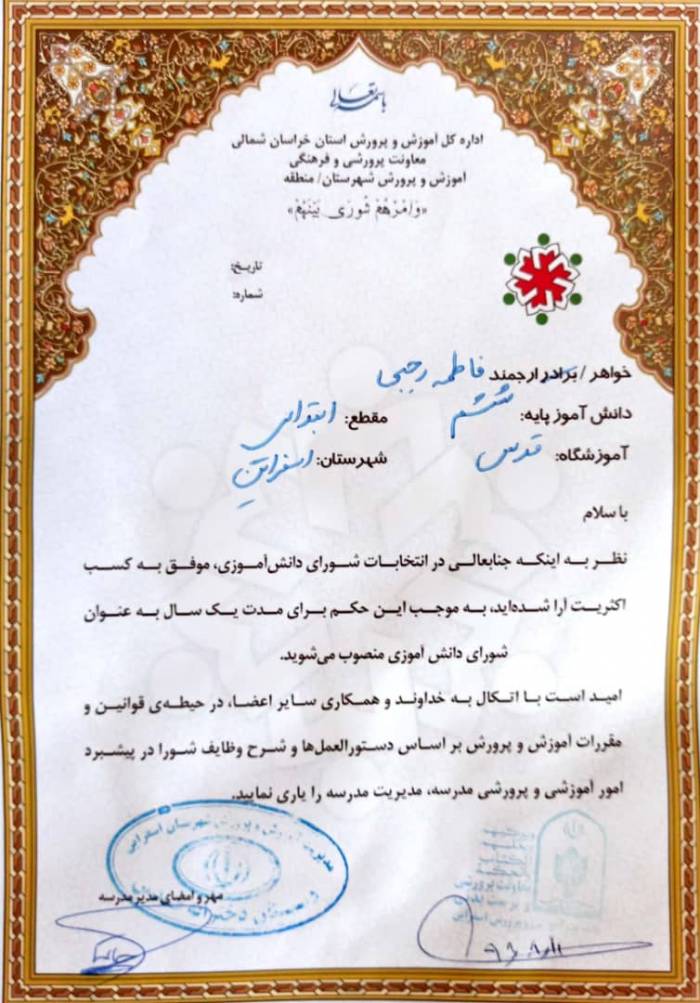 باسمه تعالی
اداره کل آموزش و پرورش استان خراسان شمالی
معاونت پرورشی و فرهنگی
آموزش و پرورش شهرستان/ منطقه
«وَاَمْرُهُمْ شُورَی بَیْنَهُمْ»
تاریخ:
شماره:
خواهر / برادر ارجمند فاطمه رجبی
دانش آموز پایه: ششم مقطع: ابتدایی
آموزشگاه: قدس شهرستان: اسفراین
با سلام
نظر به اینکه جنابعالی در انتخابات شورای دانش‌آموزی، موفق به کسب
اکثریت آرا شده‌اید، به موجب این حکم برای مدت یک سال به عنوان
شورای دانش آموزی منصوب می‌شوید.
امید است با اتکال به خداوند و همکاری سایر اعضا، در حیطه‌ی قوانین و
مقررات آموزش و پرورش بر اساس دستورالعمل‌ها و شرح وظایف شورا در پیشبرد
امور آموزشی و پرورشی مدرسه، مدیریت مدرسه را یاری نمایید.
مدیریت آموزش و پرورش شهرستان اسفراین
دبستان دخترانه
مهر و امضای مدیر مدرسه
و یزکیهم
و یعلمهم
الکتاب
و الحکمة
معاونت پرورشی
و تربیت بدنی